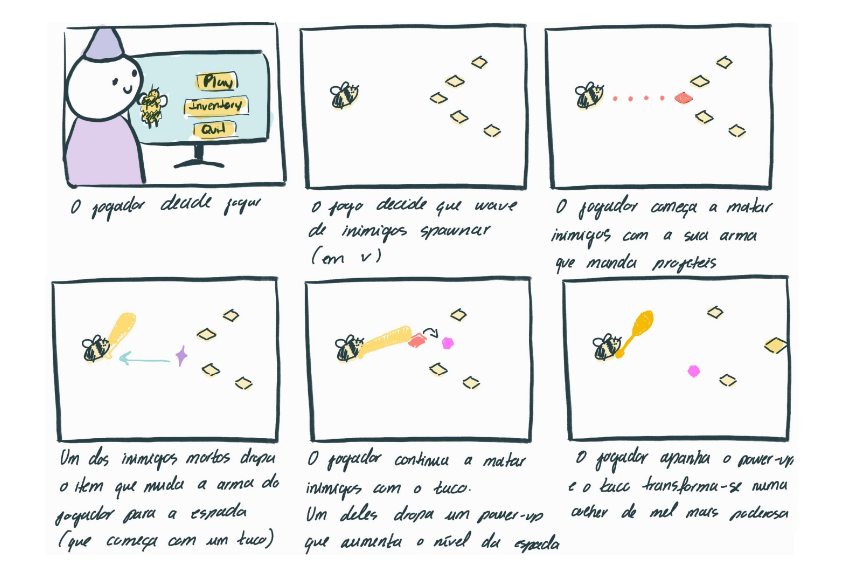 Play
Inventory
Quit
O jogador decide jogar
O jogo decide que wave
de inimigos spawnar
(em v)
O jogador começa a matar
inimigos com a sua arma
que manda projeteis
Um dos inimigos mortos dropa
o item que muda a arma do
jogador para a espada
(que começa com um taco)
O jogador continua a matar
inimigos com o taco.
Um deles dropa um power-up
que aumenta o nível da espada
O jogador apanha o power-up
e o taco transforma-se numa
colher de mel mais poderosa